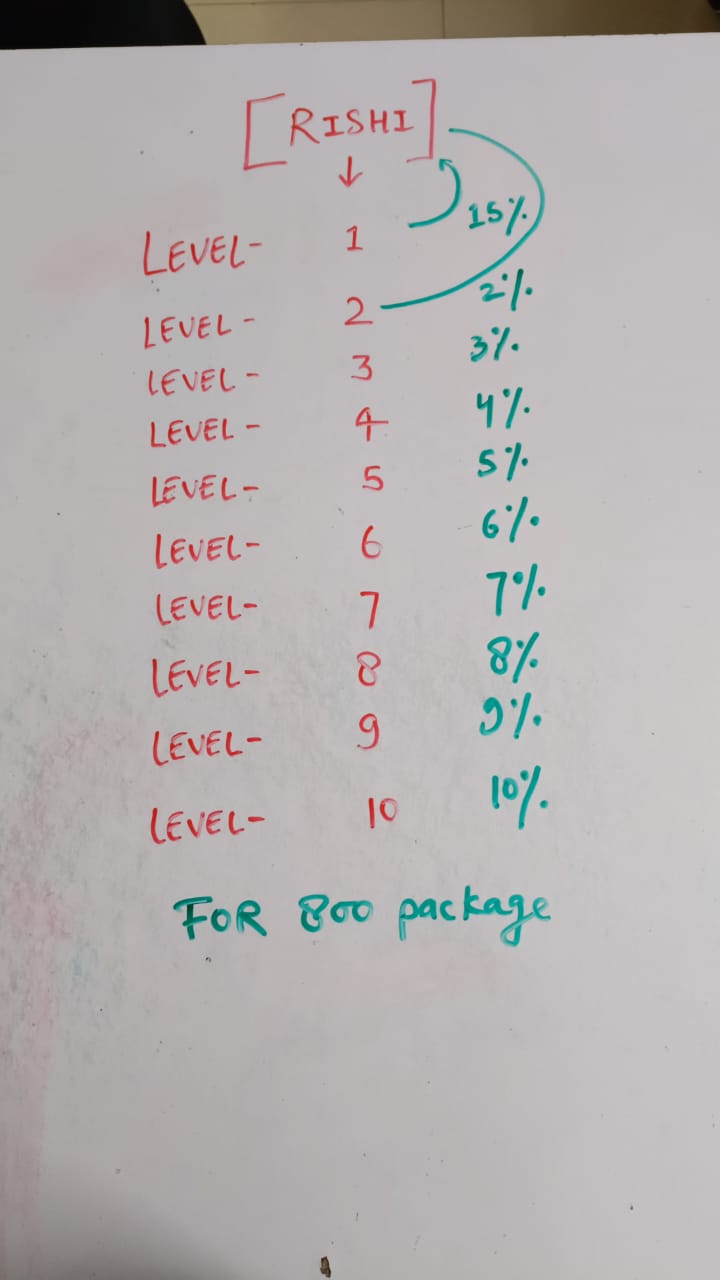 [RISHI]
↓
LEVEL- 1 15%
LEVEL- 2 2%
LEVEL- 3 3%
LEVEL- 4 4%
LEVEL- 5 5%
LEVEL- 6 6%
LEVEL- 7 7%
LEVEL- 8 8%
LEVEL- 9 9%
LEVEL- 10 10%
FOR 800 package